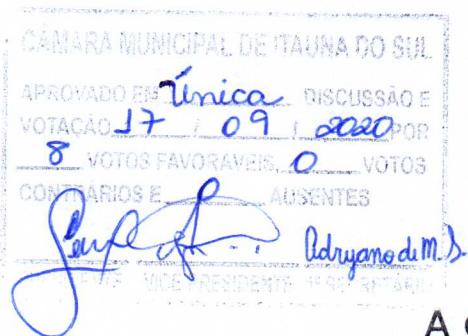 CÂMARA MUNICIPAL DE ITAUNA DO SUL
APROVADO EM Única DISCUSSÃO E
VOTAÇÃO 17 / 09 / 2020 POR
8 VOTOS FAVORAVEIS, 0 VOTOS
CONTRÁRIOS E AUSENTES
Adryano de M. S.
VICE PRESIDENTE
A